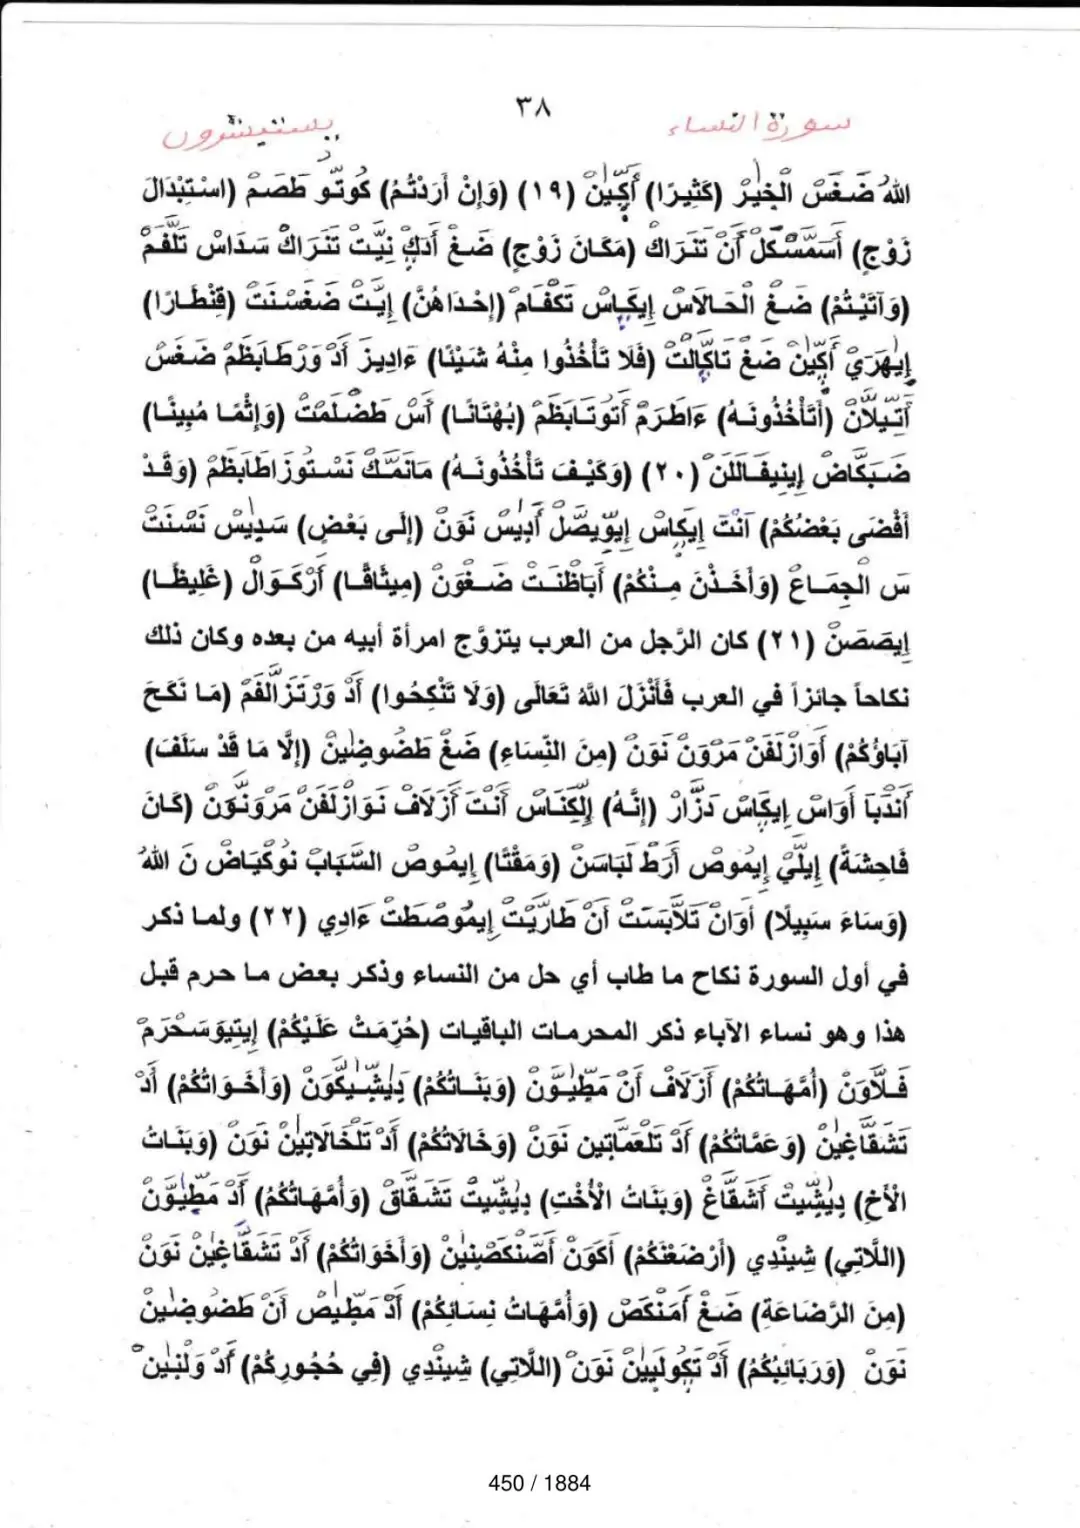 ٣٨
سورة النساء
يستبشرون
اللهُ ضَغَسْ الْخِيْرْ (كَثِيرًا) أَكِيَنْ (١٩) (وَإِنْ أَرَدْتُمُ) كُوتُّو طَصَمْ (اسْتِبْدَالَ
زَوْجٍ) أَسَمَّسْكَلْ أَنْ تَنَرَاكْ (مَكَانَ زَوْجٍ) ضَغْ أَدَكْ نِيَّتْ تَنَرَاكْ سَدَاسْ تَلَّفَمْ
(وَآتَيْتُمْ) ضَغْ الْحَالَاسْ إِيكَاسْ تَكْفَامْ (إِحْدَاهُنَّ) إِيَّتْ ضَغَسْنَتْ (قِنْطَارًا)
إِيهَرَيْ أَكِيَنْ ضَغْ تَاكَالْتْ (فَلَا تَأْخُذُوا مِنْهُ شَيْئًا) ءَادِيزَ أَدْ وَرْطَابَظَمْ ضَغَسْ
أَتِيلَانْ (أَتَأْخُذُونَهُ) ءَاطَرَمْ أَتُوتَابَظَمْ (بُهْتَانًا) أَسْ طَضْلَمْتْ (وَإِثْمًا مُبِينًا)
ضَبَكَّاضْ إِينِيفَالَلَنْ (٢٠) (وَكَيْفَ تَأْخُذُونَهُ) مَانَمَّكْ نَسْتُوزَاطَابَظَمْ (وَقَدْ
أَفْضَى بَعْضُكُمْ) آنْتْ إِيكَاسْ إِيوِيصَلْ أَدِيسْ نَوَنْ (إِلَى بَعْضٍ) سَدِيسْ نَسْنَتْ
سَ الْجِمَاعْ (وَأَخَذْنَ مِنْكُمْ) أَبَاظْنَتْ ضَغْوَنْ (مِيثَاقًا) أَرْكَوَالْ (غَلِيظًا)
إِيصَصَنْ (٢١) كان الرَّجل من العرب يتزوَّج امرأة أبيه من بعده وكان ذلك
نكاحاً جائزاً في العرب فَأَنْزَلَ اللهُ تَعَالَى (وَلَا تَنْكِحُوا) أَدْ وَرْتَزَّالَفَمْ (مَا نَكَحَ
آبَاؤُكُمْ) أَوَازْلَفَنْ مَرَوَنْ نَوَنْ (مِنَ النِّسَاءِ) ضَغْ طَضُوضِيْنْ (إِلَّا مَا قَدْ سَلَفَ)
أَنَدْبَآ أَوَاسْ إِيكَاسْ دَزَّارْ (إِنَّهُ) إِلِّكَنَاسْ أَنْتْ أَزَلَافْ نَوَازْلَفَنْ مَرَوَنَّوَنْ (كَانَ
فَاحِشَةً) إِيلَّيْ إِيمُوصْ أَرَطْ لَبَاسَنْ (وَمَقْتًا) إِيمُوصْ السَّبَابْ نُوكْيَاضْ نَ اللهُ
(وَسَاءَ سَبِيلًا) أَوَانْ تَلَابَسَتْ أَنْ طَارَيْتْ إِيمُوصَطَتْ ءَادِي (٢٢) ولما ذكر
في أول السورة نكاح ما طاب أي حل من النساء وذكر بعض ما حرم قبل
هذا وهو نساء الآباء ذكر المحرمات الباقيات (حُرِّمَتْ عَلَيْكُمْ) إِيتِيوَسَحْرَمْ
فَلَّاوَنْ (أُمَّهَاتُكُمْ) أَزَلَافْ أَنْ مَطِّيْوَنْ (وَبَنَاتُكُمْ) دِيْشِّيكَوَنْ (وَأَخَوَاتُكُمْ) أَدْ
تَشَقَّاغِيْنْ (وَعَمَّاتُكُمْ) أَدْ تَلْعَمَّاتِين نَوَنْ (وَخَالَاتُكُمْ) أَدْ تَلْخَالَاتِيْنْ نَوَنْ (وَبَنَاتُ
الْأَخِ) دِيْشِّيتْ أَشَقَّاغْ (وَبَنَاتُ الْأُخْتِ) دِيْشِّيتْ تَشَقَّاقْ (وَأُمَّهَاتُكُمُ) أَدْ مَطِّيْوَنْ
(اللَّاتِي) شِينْدِي (أَرْضَعْنَكُمْ) أَكَوَنْ أَصَّنْكَصْنِيْنْ (وَأَخَوَاتُكُمْ) أَدْ تَشَقَّاغِيْنْ نَوَنْ
(مِنَ الرَّضَاعَةِ) ضَغْ أَمَنْكَصْ (وَأُمَّهَاتُ نِسَائِكُمْ) أَدْ مَطِّيْصْ أَنْ طَضُوضِيْنْ
نَوَنْ (وَرَبَائِبُكُمُ) أَدْ تَكُولِيْيِنْ نَوَنْ (اللَّاتِي) شِينْدِي (فِي حُجُورِكُمْ) أَدْ وَلْنِيْنْ
450 / 1884